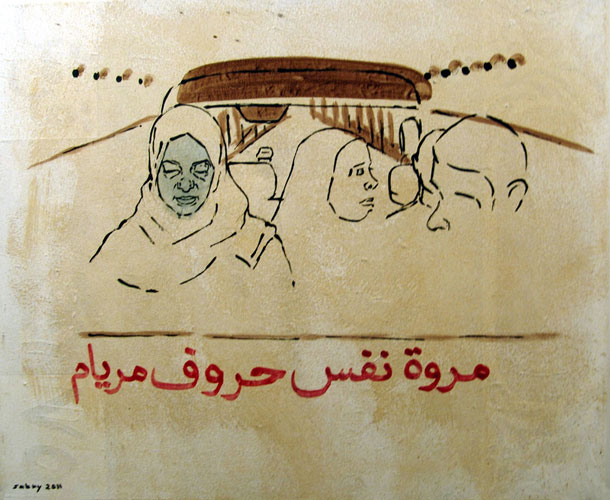 مروة نفس حروف مريام
sabry 2011